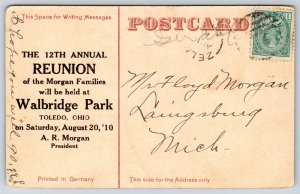 This Space for Writing Messages
POSTCARD
THE 12TH ANNUAL
REUNION
of the Morgan Families
will be held at
Walbridge Park
TOLEDO, OHIO
on Saturday, August 20, '10
A. R. Morgan
President
Mr Floyd Morgan
Laingsburg
Mich.
Printed in Germany
This side for the Address only